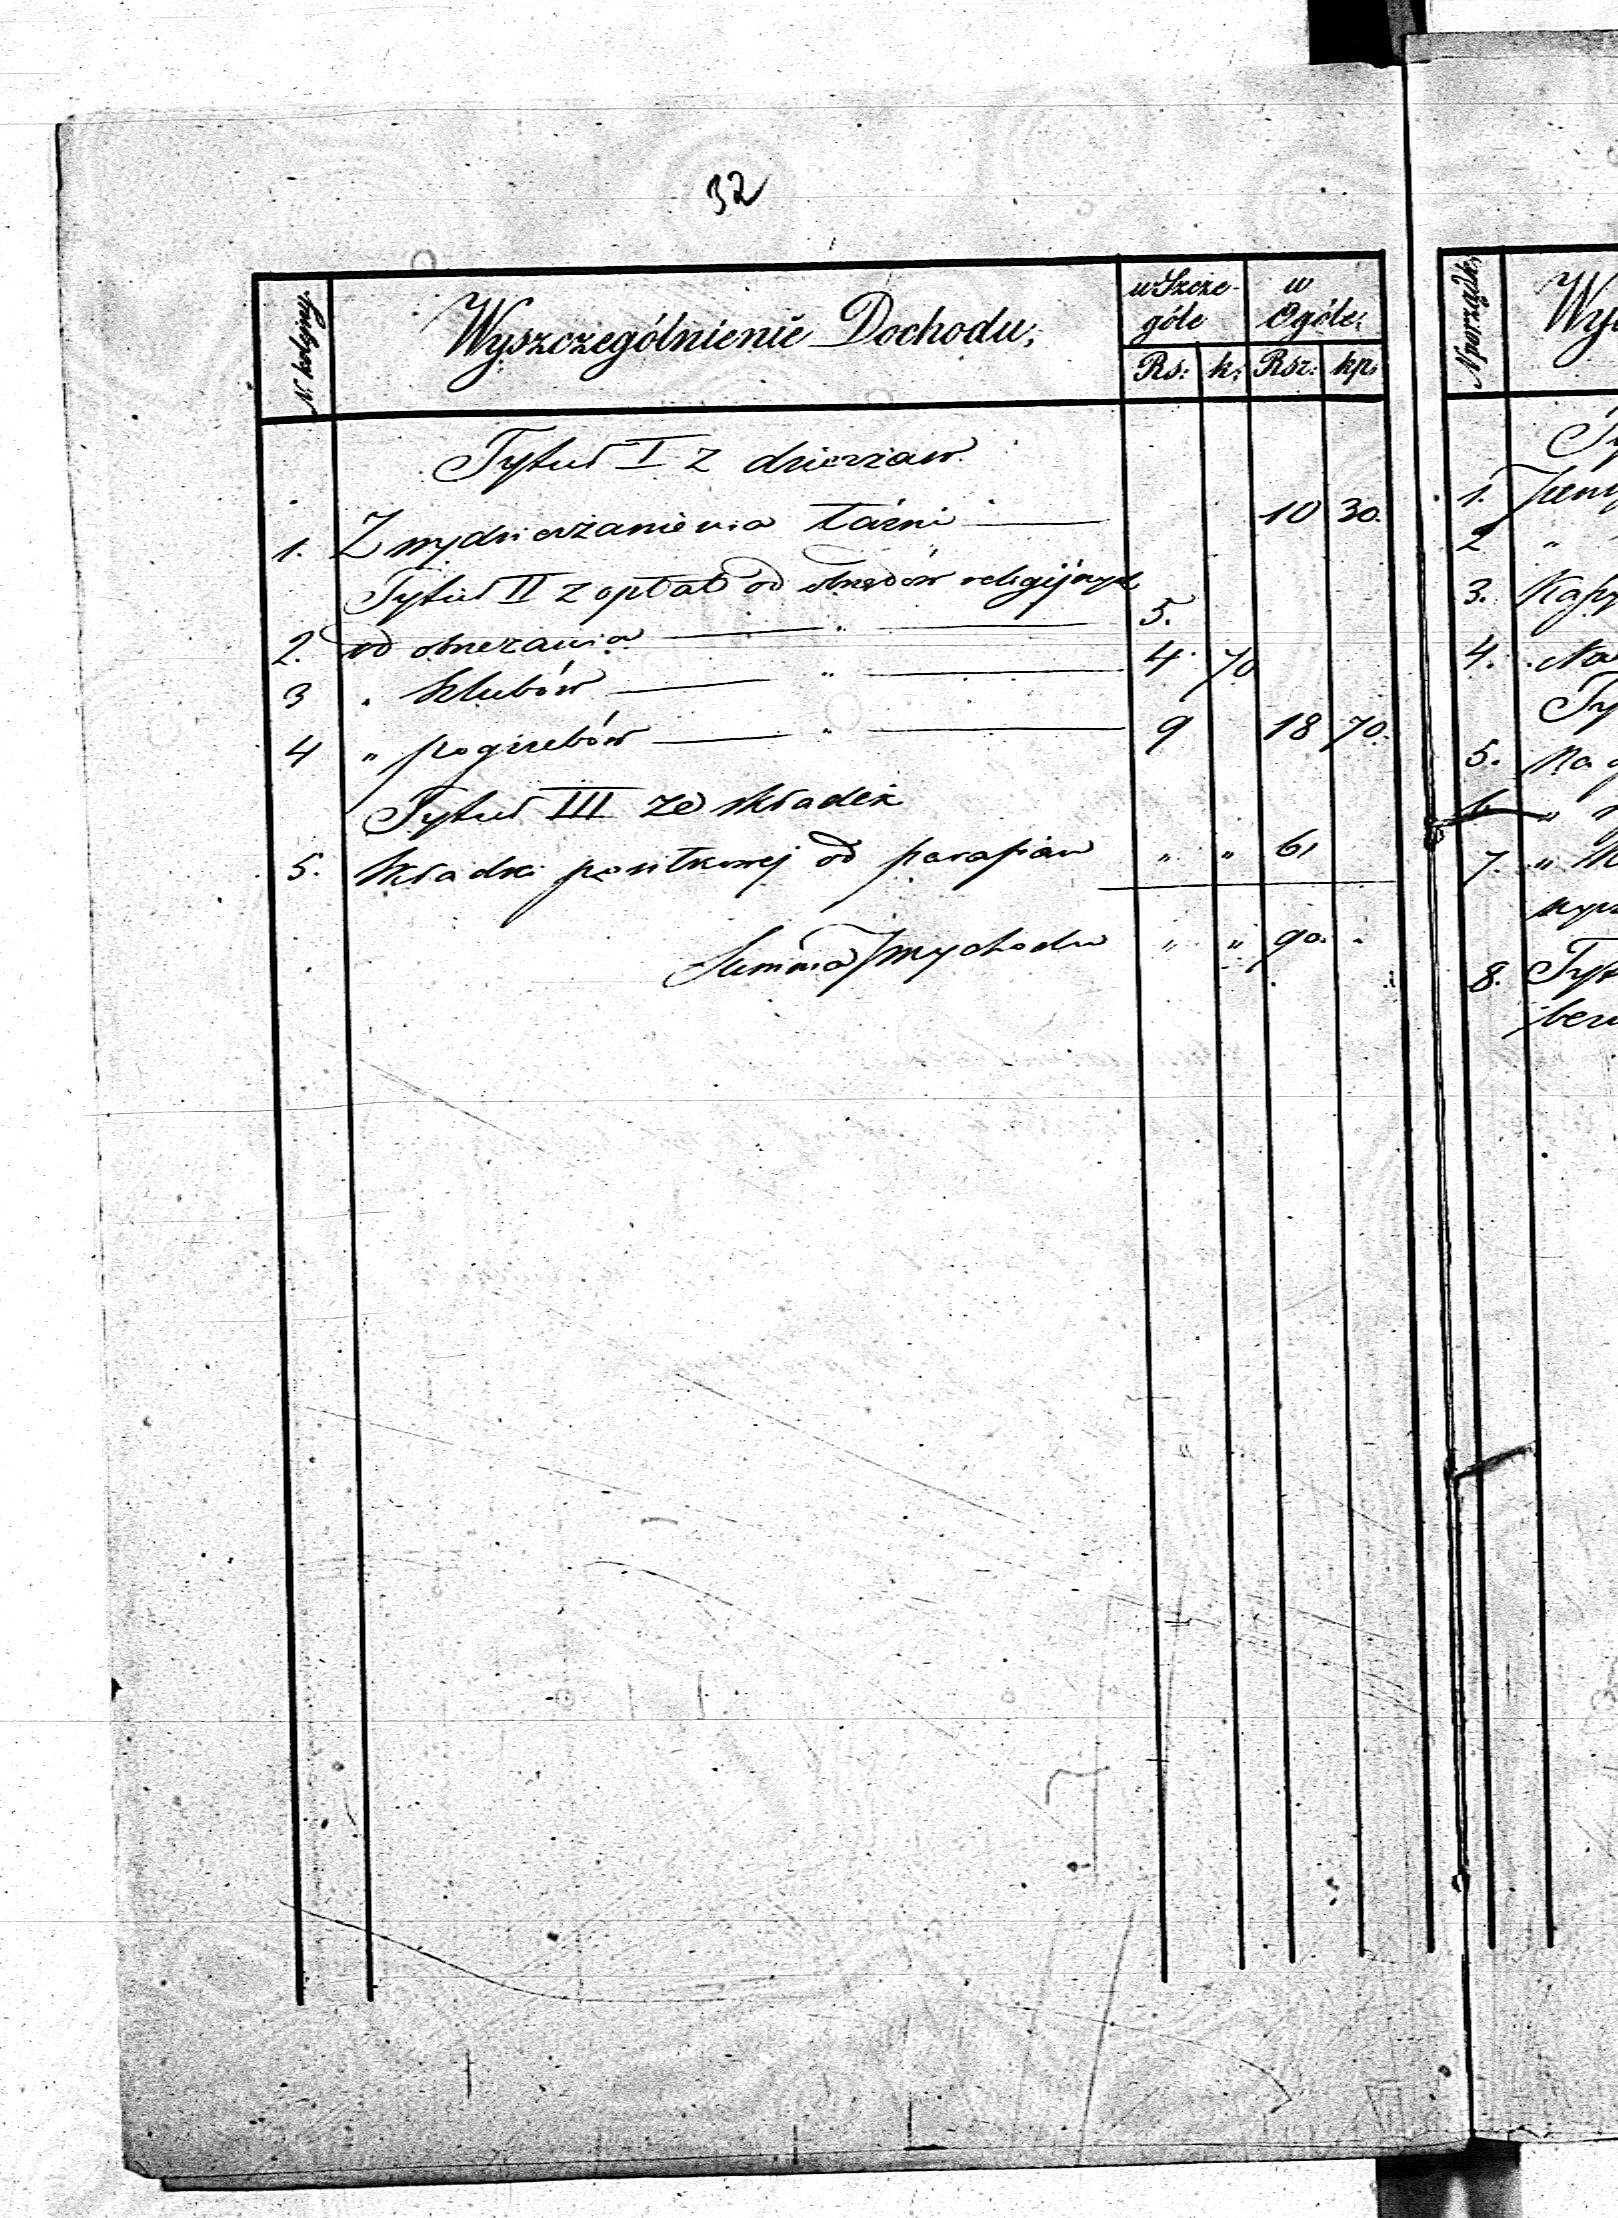 32
N. kolejny. Wyszczególnienie Dochodu; w Szcze- w
góle Ogóle;
Rs: k; Rsz: kp.
Tytuł I z dzierżaw
1. Z wydzierżawienia łaźni 10 30.
Tytuł II z opłat od obrzędów religijnych
2. od obrzezania " 5.
3 " ślubów " 4. 70
4 " pogrzebów " 9 18 70.
Tytuł III ze składek
5. Składki posiłkowej od parafian " " 61
Summa przychodu " " 90.
N porządk.
1.
2 "
3.
4. Na
5. Na
6 "
7. "
8.